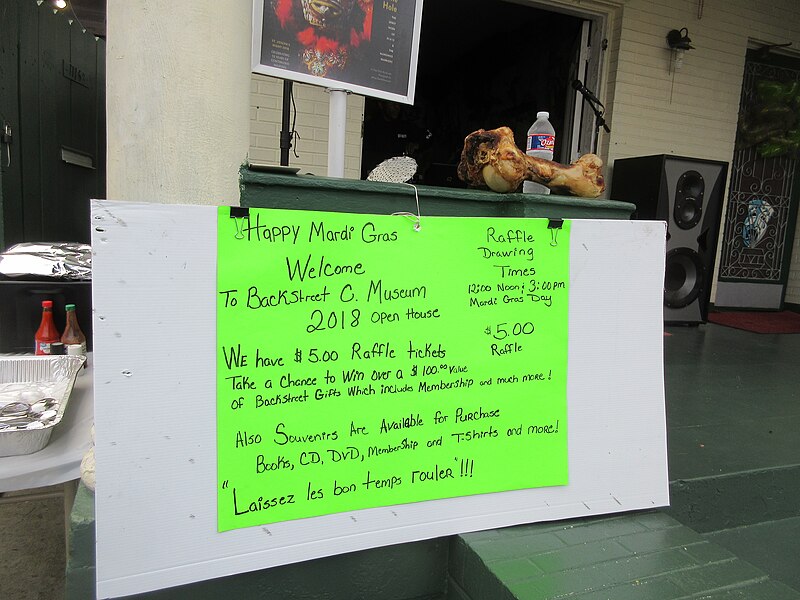 Hole
Happy Mardi Gras
Welcome
To Backstreet C. Museum
2018 Open House
We have $5.00 Raffle tickets
Take a Chance to Win over a $100.00 Value
of Backstreet Gifts Which includes Membership and much more!
Also Souvenirs Are Available for Purchase
Books, CD, DVD, Membership and T-Shirts and more!
"Laissez les bon temps rouler"!!!
Raffle
Drawing
Times
12:00 Noon; 3:00pm
Mardi Gras Day
$5.00
Raffle